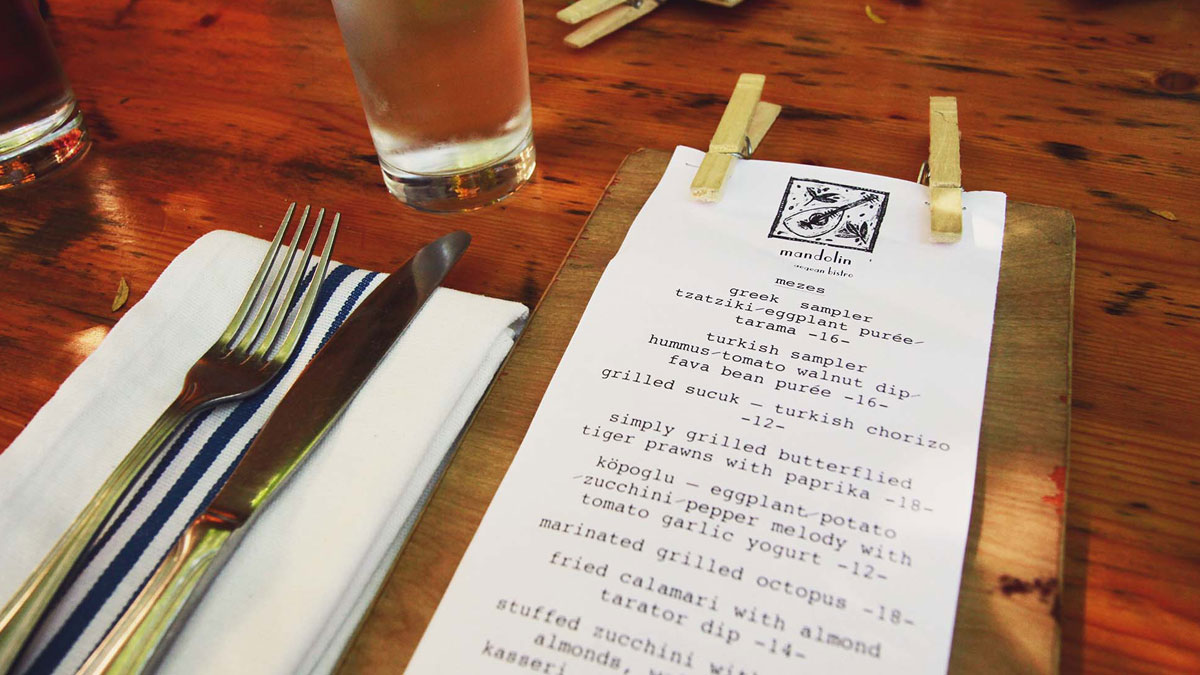 mandolin
aegean bistro
mezes
greek sampler
tzatziki-eggplant purée-
tarama -16-
turkish sampler
hummus-tomato walnut dip-
fava bean purée -16-
grilled sucuk — turkish chorizo
-12-
simply grilled butterflied
tiger prawns with paprika -18-
köpoglu — eggplant-potato
-zucchini-pepper melody with
tomato garlic yogurt -12-
marinated grilled octopus -18-
fried calamari with almond
tarator dip -14-
stuffed zucchini with
almonds,
kasseri